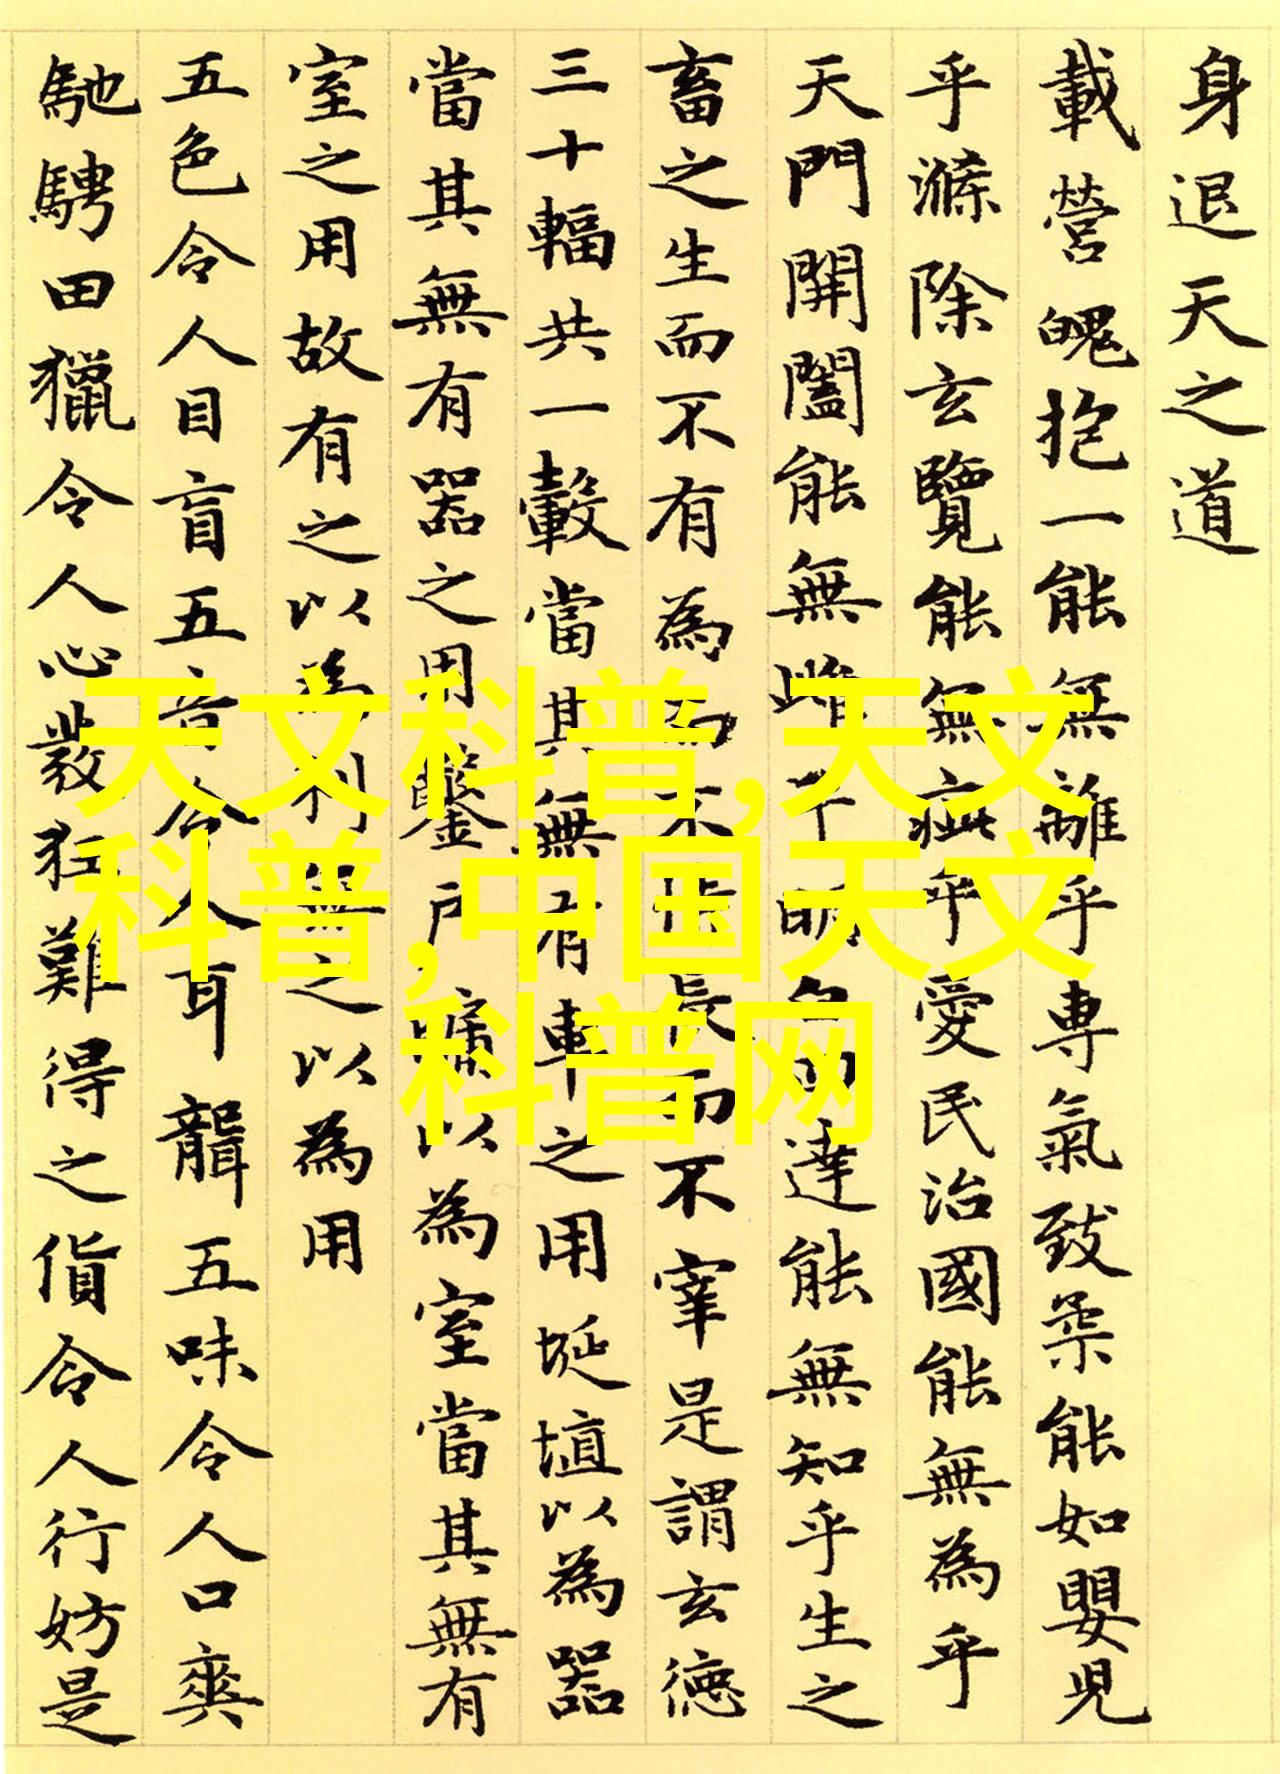 身退天之道
載營魄抱一能無離乎専氣致柔能如嬰児
乎滌除玄覽能無疵乎愛民治國能無為乎
天門開闔能無雌乎明白四達能無知乎生之
畜之生而不有為而不恃長而不宰是謂玄德
三十輻共一轂當其無有車之用埏埴以為器
當其無有器之用鑿戶牖以為室當其無有
室之用故有之以為利無之以為用
五色令人目盲五音令人耳聾五味令人口爽
馳騁田獵令人心發狂難得之貨令人行妨是
天文科普,天文
科普,中国天文
科普网